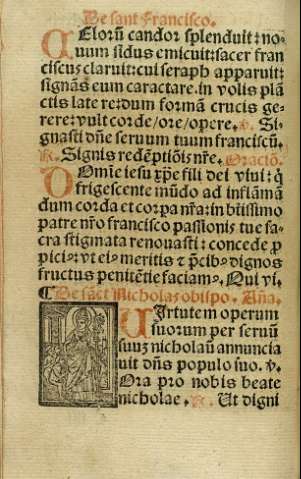 De sant Francisco.
CElorū candor splenduit: no-
uum sidus emicuit: sacer fran
ciscus claruit: cui seraph apparuit:
signās eum caractare. in volis plā
ctis latere: dum formā crucis ge-
rere: vult corde/ore/opere. v. Si-
gnasti dñe seruum tuum franciscū.
R. Signis redēptiōis nr̄e. Oratiō.
DOmie iesu xp̄e fili dei viui: q̄
frigescente mūdo ad inflāmā
dum corda et corpa nr̄a: in btīssimo
patre nr̄o francisco passionis tue sa-
cra stigmata renouasti: concede p̄
pici⁹: vt ei⁹ meritis & p̄cib⁹ dignos
fructus penitētie faciam⁹. Qui vi.
¶ De sāct Nicholas obispo. Aña.
UIrtutem operum
suorum per seruū
suuz nicholaū annuncia
uit dñs populo suo. v.
Ora pro nobis beate
nicholae. R. Ut digni